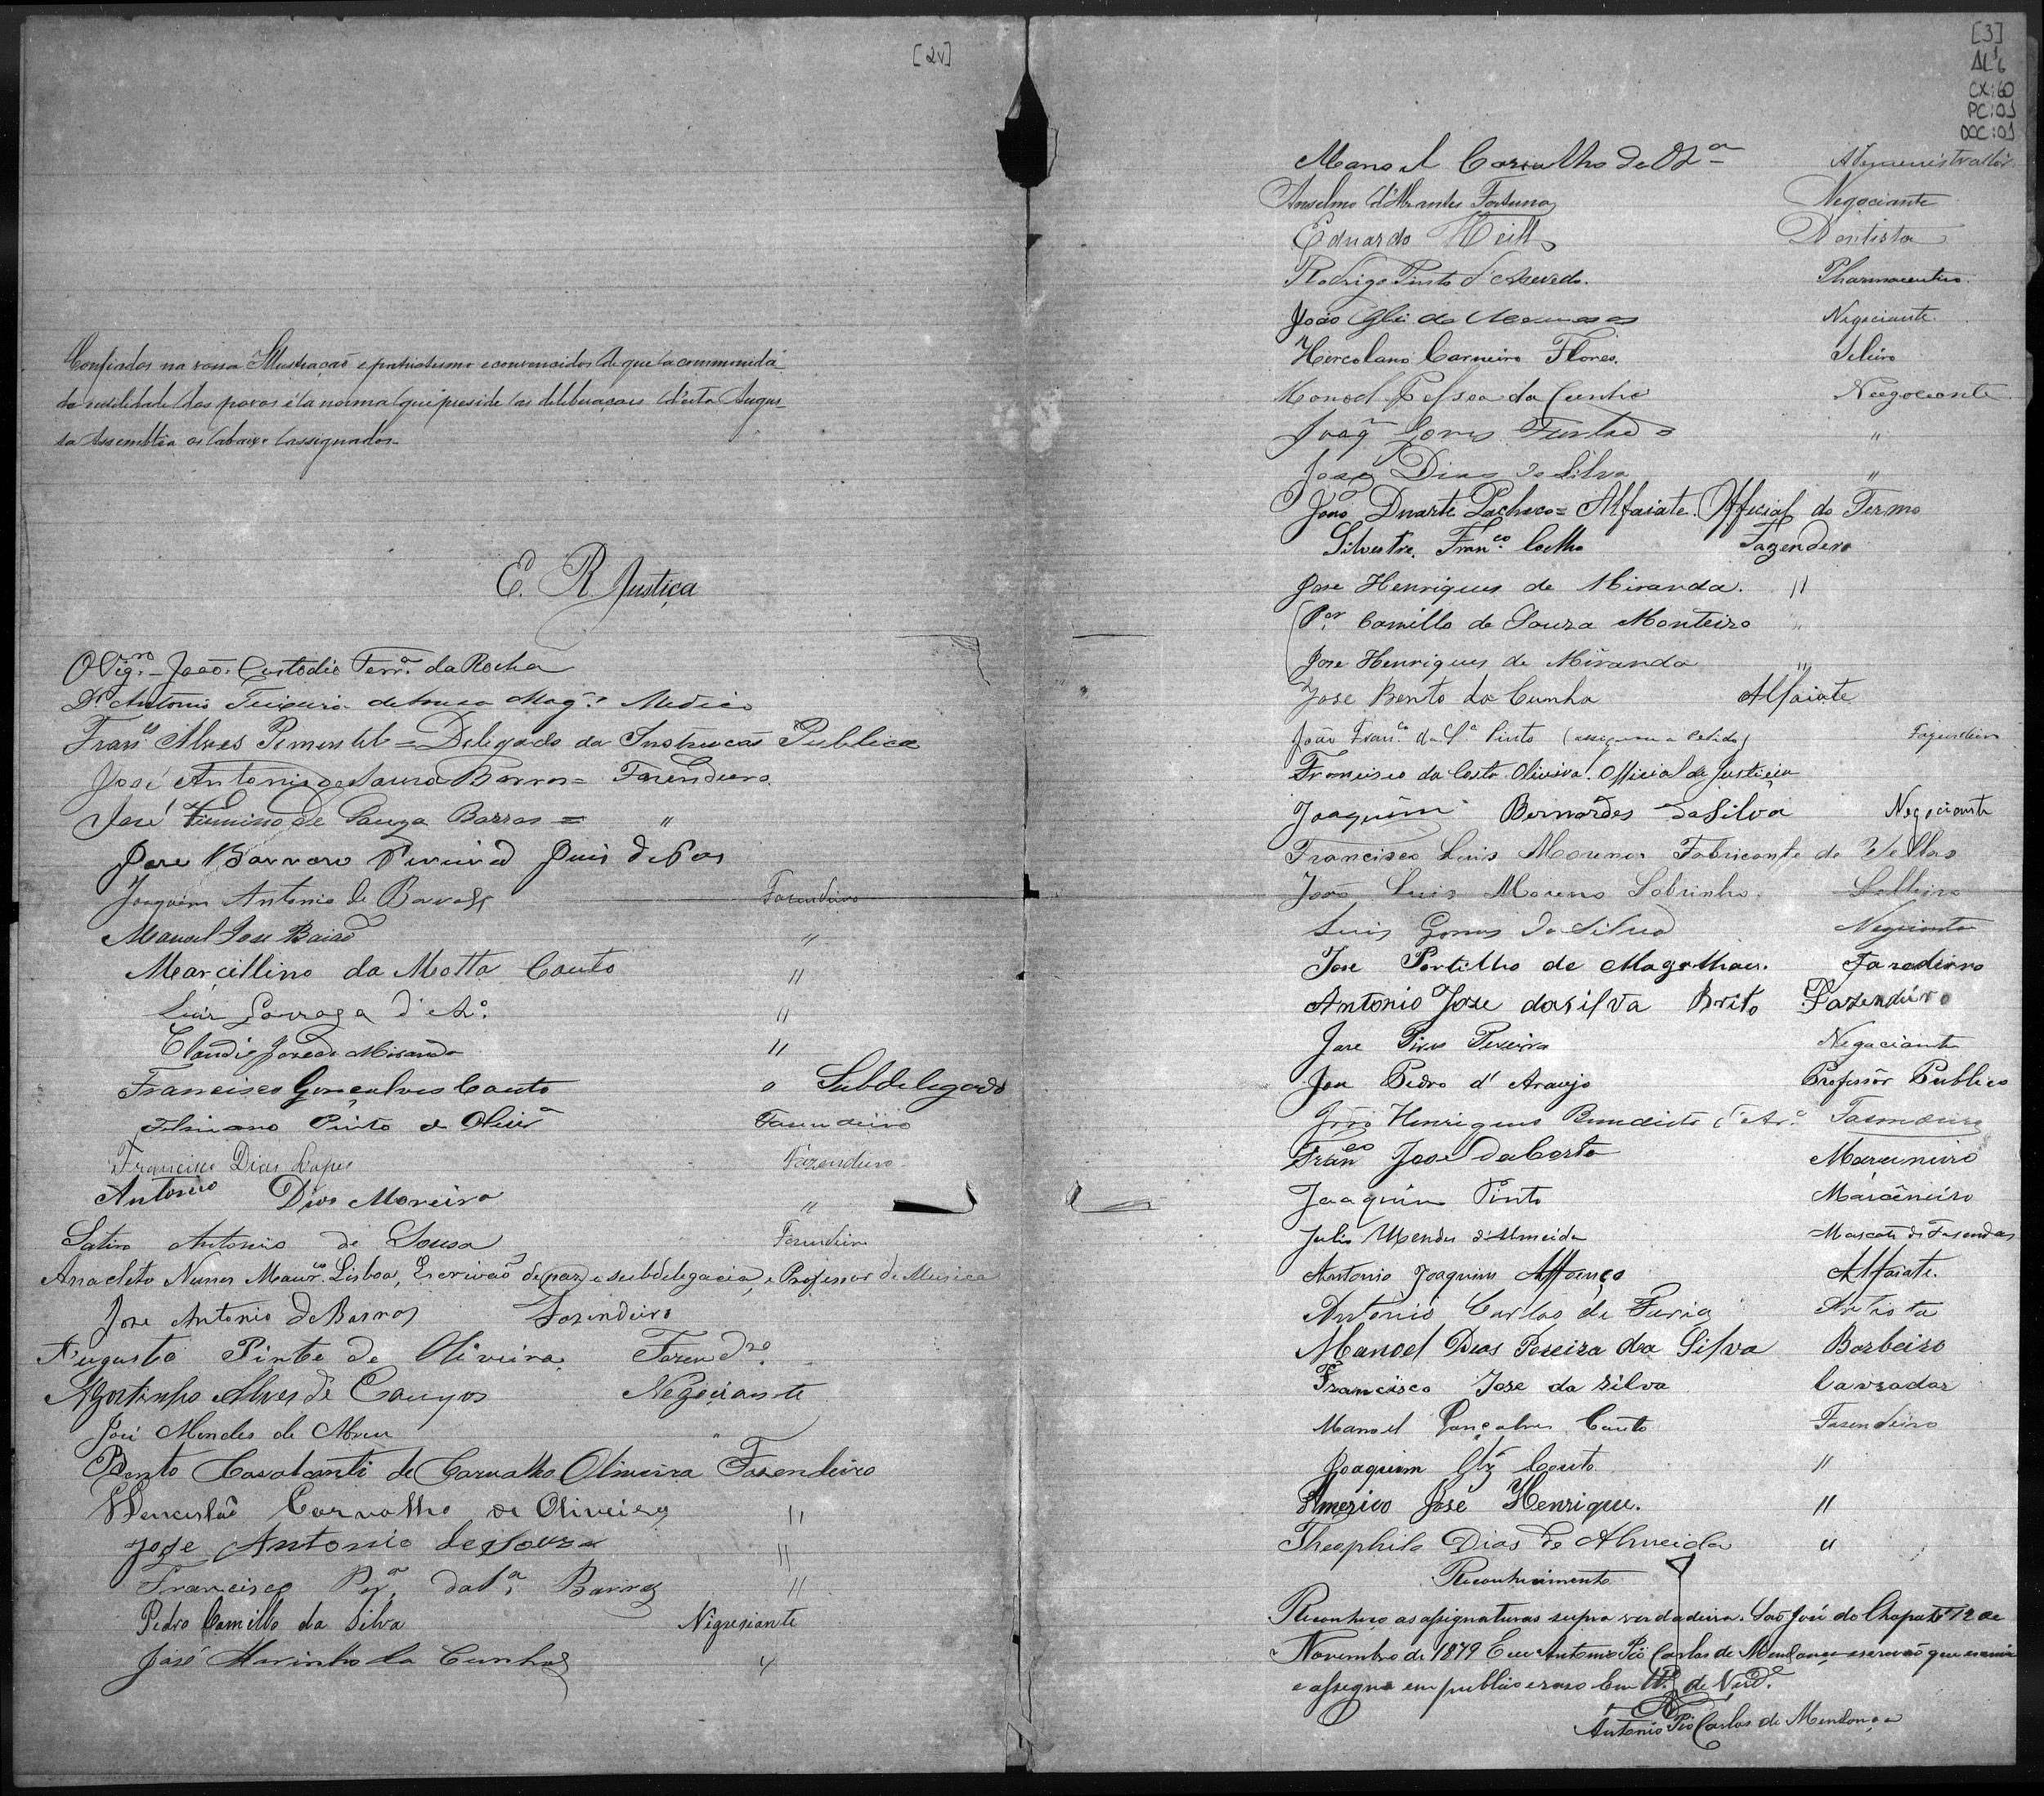 [2v]
Confiados na vossa Illustração e patriotismo e convencidos de que a commmunida-
de dos povos é a norma que preside as deliberaçoes d'esta Augus-
ta Assemblea os abaixo assignados
E. R. Justiça
O Vigro João Custodio Ferra da Rocha
Dr Antonio Teixeira de Mages Medico
Franco Alves Pimentel = Delegado da Instrucão Publica
José Antonio de Souza Barros = Fazendeiro
José Firmino de Souza Barros = "
José Pereira Juis de Pas
Joaquim Antonio de Barros Fazendeiro
Manoel Jose "
Marcillino da Motta Couto "
Luis Gonzaga d' "
Claudio Jose de Miranda "
Francisco Gonçalves Couto o Subdelegado
Feliciano Pinto de Olivra Fasendeiro
Francisco Dias Lopes Fazendeiro
Antonio Dias Moreira "
Antonio de Sousa Fazendeiro
Anacleto Nunes Maurco Lisboa, Escrivão de paz e subdelegacia, e Professor de Musica
Jose Antonio de Barros Fosendeiro
Augusto Pinto de Oliveira Fazendro
Agostinho Alves de Negociante
José Mendes de Abreu "
Bento Cavalcanti de Carvalho Oliveira Fasendeiro
Wenceslaõ Carvalho de Oliveira "
Jose Antonio de Souza "
Francisco Pra da Sa Barros "
Pedro Camillo da Silva Nigosiante
José Marinho da Cunha "
[3]
AL16
CX:60
PC:01
DOC:01
Manoel Carvalho de Olra Administrador
Anselmo d'Abrantes Fortuna Negociante
Eduardo Dentista
Rodrigo Pinto d'Asevedo. Pharmaceutico.
João de Menezes Nigociante.
Hercolano Carneiro Flores. Seleiro
Manoel Pessoa da Cunha Neegociante
Joaqm Gomes Furtado "
Jose Dias da Silva "
João Duarte Pacheco = Alfaiate. Official do Termo
Silvestre Franco Coelho Fazendero
Jose Henriques de Miranda. "
Por Camillo de Souza Monteiro "
Jose Henriques de Miranda "
Jose Bento da Cunha Alfaiate
João Franco da Sa Pinto (assigna a Pedido) Fazendeiro
Francisco da Costa Oliveira. Official de Justiça
Joaquim Bernardes da Silva Negociante
Francisco Luis Moreno. Fabricante de Vellas
João Luis Moreno Sobrinho. Selleiro
Luis Gomes da Silva Negociante
Jose Portilho de Magalhaes. Fazedeiro
Antonio Jose dasilva Brito Fazendeiro
Jose Pires Pereira Negociante
Jose Pedro d'Araujo Professor Publico
João Henriques Benedicto d'Aro Fasendeiro
Franco Jose da Costa Marcineiro
Joaquim Pinto Marcineiro
Julio Mendes d'Almeida Mascate de Fasendas
Antonio Joaquim Affonço Alfaiate.
Antonio Carlos de Faria Artista
Manoel Dias Pereira da Silva Barbeiro
Francisco Jose da Silva Lavrador
Manoel Gonçalves Couto Fasendeiro
Joaquim Glz Couto "
Americo José Henrique. "
Theophilo Dias de Almeida "
Reconhecimento
Reconheço as assignaturas supra verdadeiras. São José do Chapeo 12 de
Novembro de 1879 Eu Antonio Pio Carlos de Mendonça escrivão que escrevi
e assigno em publico e raso Em To de Verde.
Antonio Pio Carlos de Mendonça